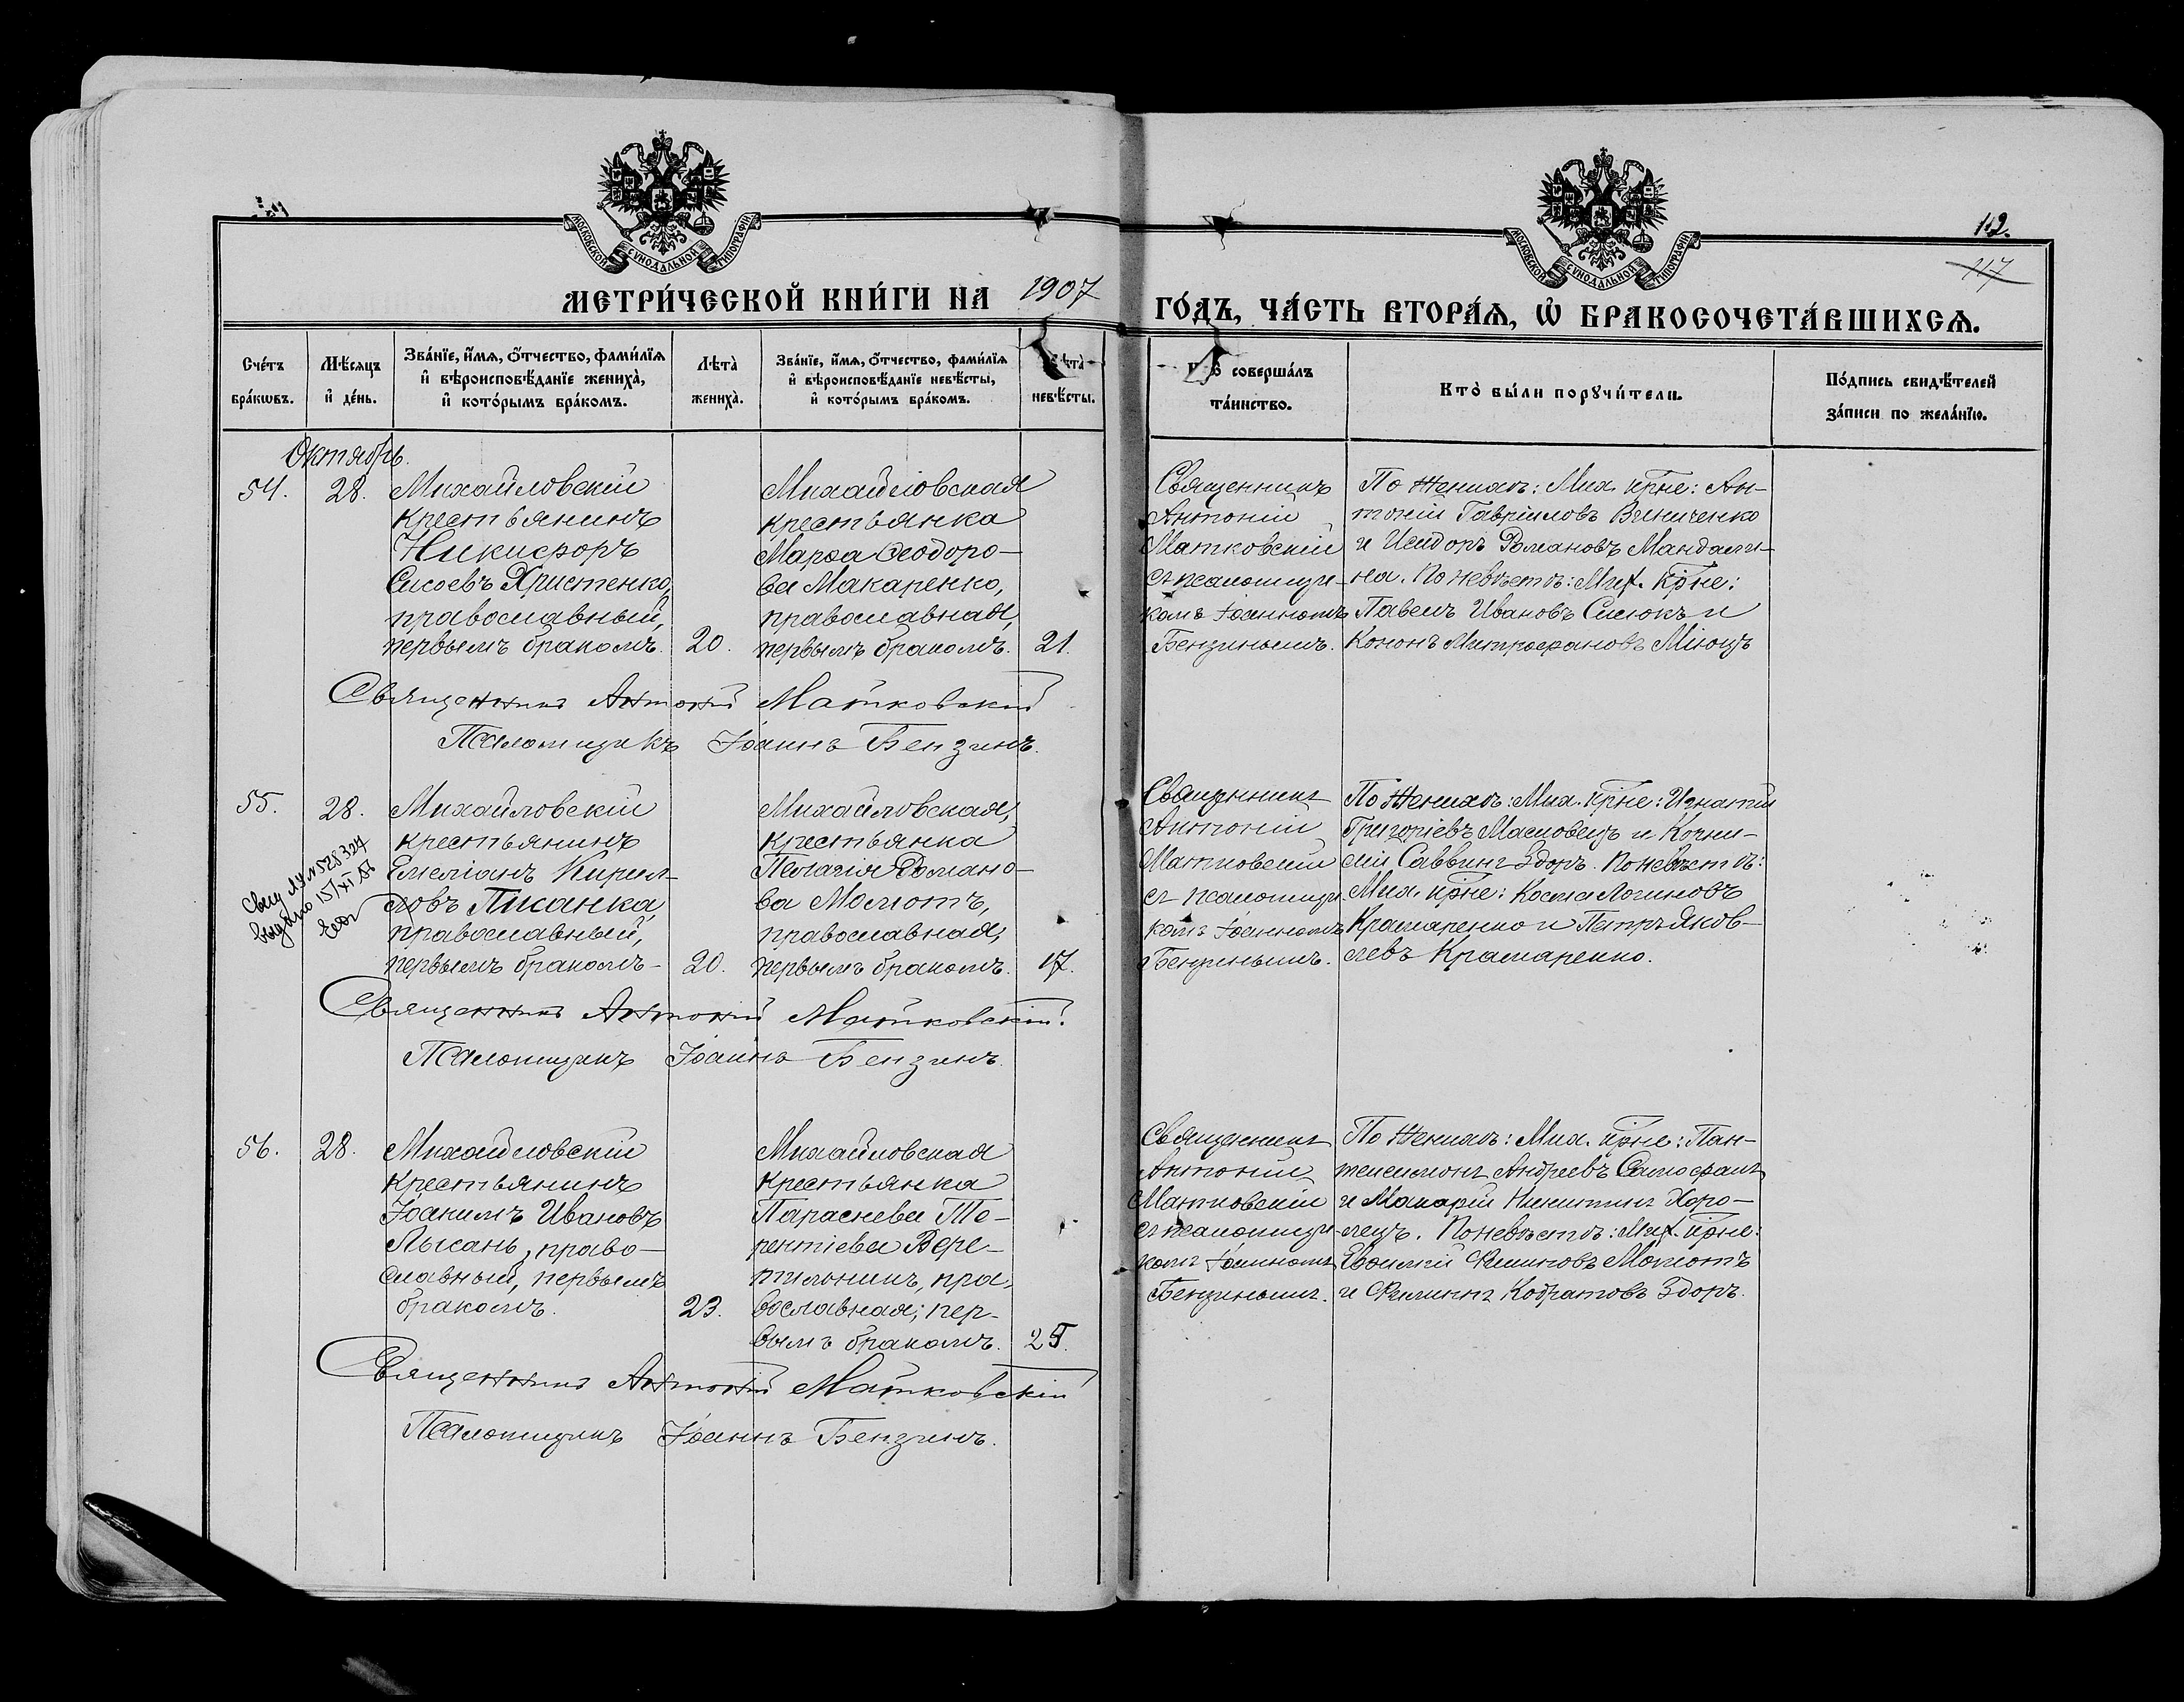 МОСКОВСКОЙ СѴНОДАЛЬНОЙ ТИПОГРАФІИ
МОСКОВСКОЙ СѴНОДАЛЬНОЙ ТИПОГРАФІИ
112.
117
МЕТРИ́ЧЕСКОЙ КНИ́ГИ НА 1907 ГО́ДЪ, ЧА́СТЬ ВТОРА́Ѧ, Ѡ҆ БРАКОСОЧЕТА́ВШИХСѦ.
Сче́тъ бра́кѡвъ.
Мѣ́сяцъ и҆ де́нь.
Зва́нїе, и҆́мѧ, ѻ҆́тчество, фами́лїѧ и҆ вѣроисповѣ́данїе жениха̀, и҆ кото́рымъ бра́комъ.
Лѣта̀ жениха̀.
Зва́нїе, и҆́мѧ, ѻ҆́тчество, фами́лїѧ и҆ вѣроисповѣ́данїе невѣ́сты, и҆ кото́рымъ бра́комъ.
невѣ́сты.
соверша́лъ та́инство.
Кто̀ бы́ли порꙋчи́тели.
По́дпись свидѣ́телей за́писи по жела́нїю.
Октябрь.
54.
28.
Михайловскій
крестьянинъ
Никифоръ
Сисоевъ Христенко,
православный,
первымъ бракомъ.
20.
Михайловская
крестьянка
Марѳа Ѳеодоро-
ва Макаренко,
православная,
первымъ бракомъ.
21.
Священникъ
Антоній
Матковскій
съ псаломщи-
комъ Іоанномъ
Бензинымъ.
По женихѣ: Мих. кр-не: Ан-
тоній Гавріиловъ Винниченко
и Исидоръ Романовъ Мандали-
на. По невѣстѣ: Мих. кр-не:
Павелъ Ивановъ Сисюкъ и
Кононъ Митрофановъ
Священникъ Антоній Матковскій
Псаломщикъ Іоаннъ Бензинъ.
55.
28.
Михайловскій
крестьянинъ
Емеліанъ Кирил-
ловъ Писанка,
православный,
первымъ бракомъ-
20.
Михайловская,
крестьянка
Пелагія Романо-
ва Молютъ,
православная,
первымъ бракомъ.
17.
Священникъ
Антоній
Матковскій
съ псаломщи-
комъ Іоанномъ
Бензинымъ.
По женихѣ: Мих. кр-не: Игнатій
Григоріевъ Масловецъ и Корни-
лій Саввинъ Здоръ. По невѣстѣ:
Мих. кр-не: Косма Логиновъ
Крамаренко и Петръ Яков-
левъ Крамаренко.
Свид
выдано 15/XI
Священникъ Антоній Матковскій.
Псаломщикъ Іоаннъ Бензинъ.
56.
28.
Михайловскій
крестьянинъ
Іоакимъ Ивановъ
Лысань, право-
славный, первымъ
бракомъ.
23.
Михайловская
крестьянка
Параскева Те-
рентіева Вере-
тильникъ, пра-
вославная; пер-
вымъ бракомъ.
25.
Священникъ
Антоній
Матковскій
съ псаломщи-
комъ Іоанномъ
Бензинымъ.
По женихѣ: Мих. кр-не: Пан-
телеимонъ Андреевъ Самофалъ
и Макарій Никитинъ Хоро-
лецъ. По невѣстѣ: Мих. кр-не:
Евѳимій Филиповъ Молютъ
и Филиппъ Кодратовъ Здоръ.
Священникъ Антоній Матковскій
Псаломщикъ Іоаннъ Бензинъ.